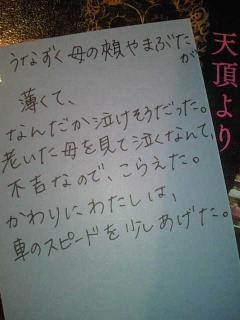 うなずく母の頬やまぶたが
薄くて、
なんだか泣けそうだった。
老いた母を見て泣くなんて、
不吉なので、こらえた。
かわりにわたしは、
車のスピードを少しあげた。
天頂より